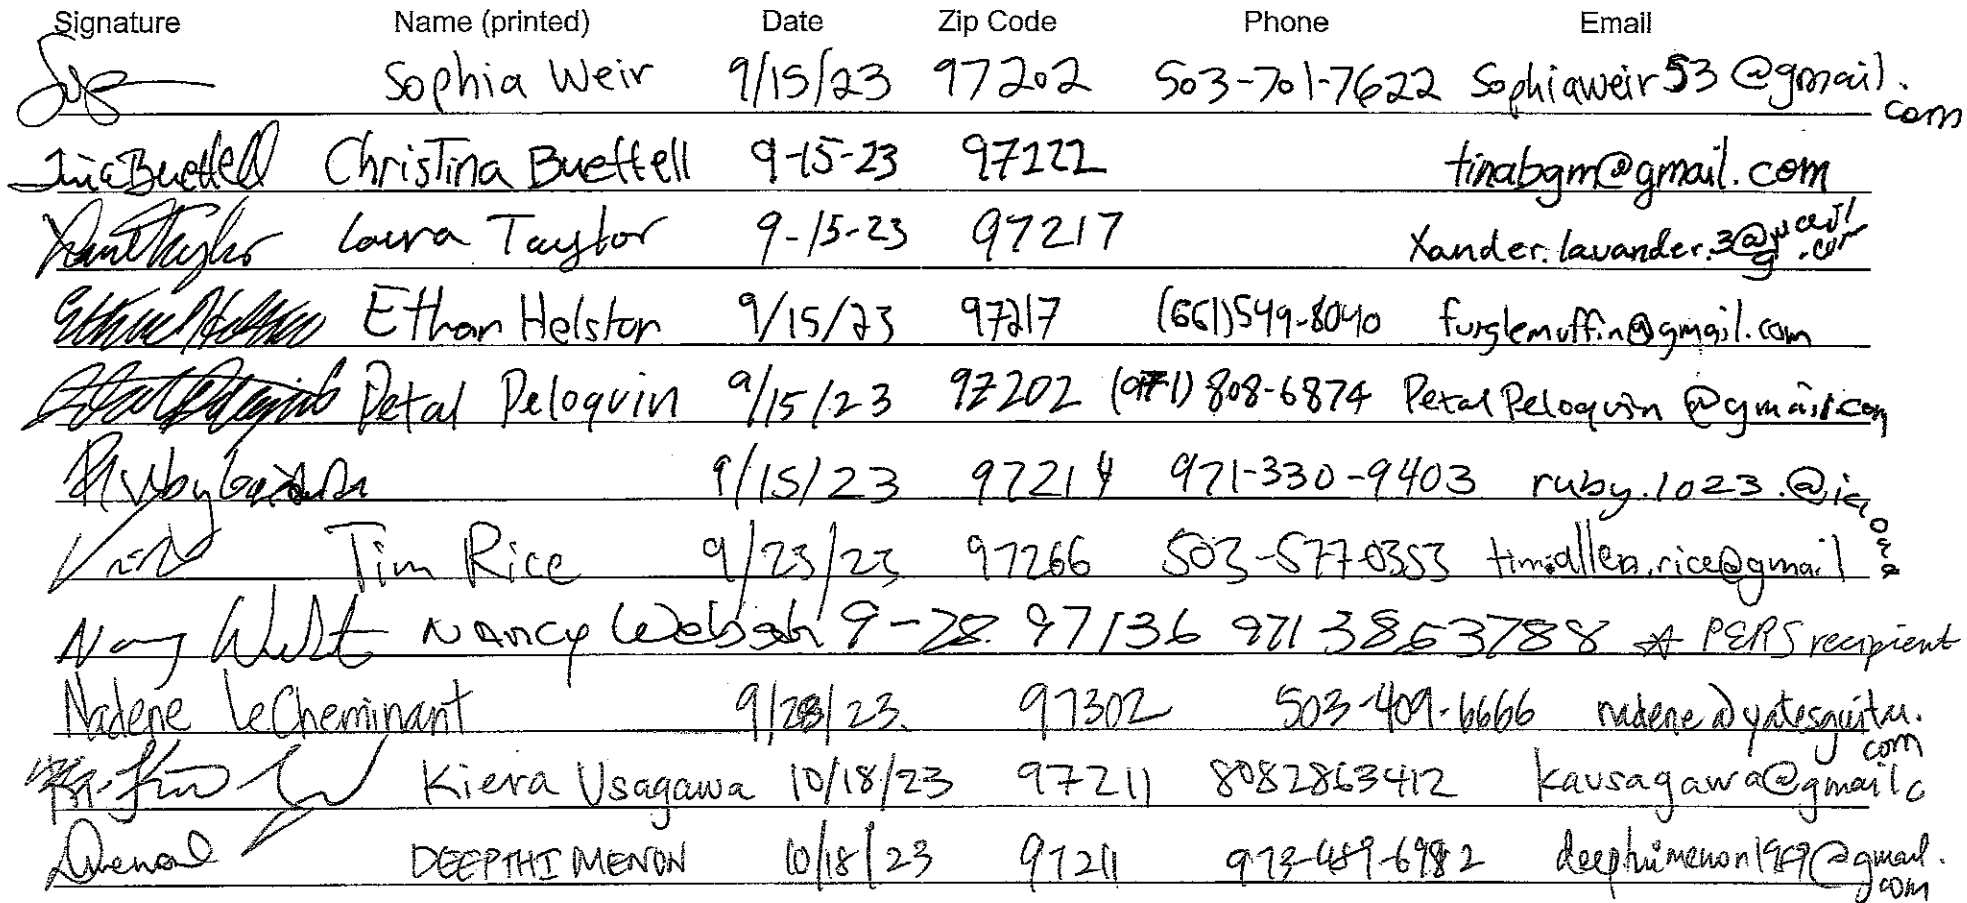 Signature Name (printed) Date Zip Code Phone Email
Sophia Weir 9/15/23 97202 503-701-7622 Sophiaweir53@gmail.com
Tina Buettell Christina Buettell 9-15-23 97222 tinabgm@gmail.com
Laura Taylor 9-15-23 97217 Xander.lavander.3@gmail.com
Ethan Helston 9/15/23 97217 (661)549-8040 furglemuffin@gmail.com
Petal Peloquin 9/15/23 97202 (971) 808-6874 PetalPeloquin@gmail.com
Ruby 9/15/23 97214 971-330-9403 ruby.1023.@icloud
Tim Rice 9/23/23 97266 503-577-0353 tim.allen.rice@gmail
Nancy 9-28 97136 971 3863788 ☆ PERS recipient
Nadene LeCheminant 9/28/23 97302 503-409-6666 nadene@yatesguitar.com
Kiera Usagawa 10/18/23 97211 8082863412 kausagawa@gmailc
DEEPTHI MENON 10/18/23 97211 973-489-6982 deepthimenon1989@gmail.com